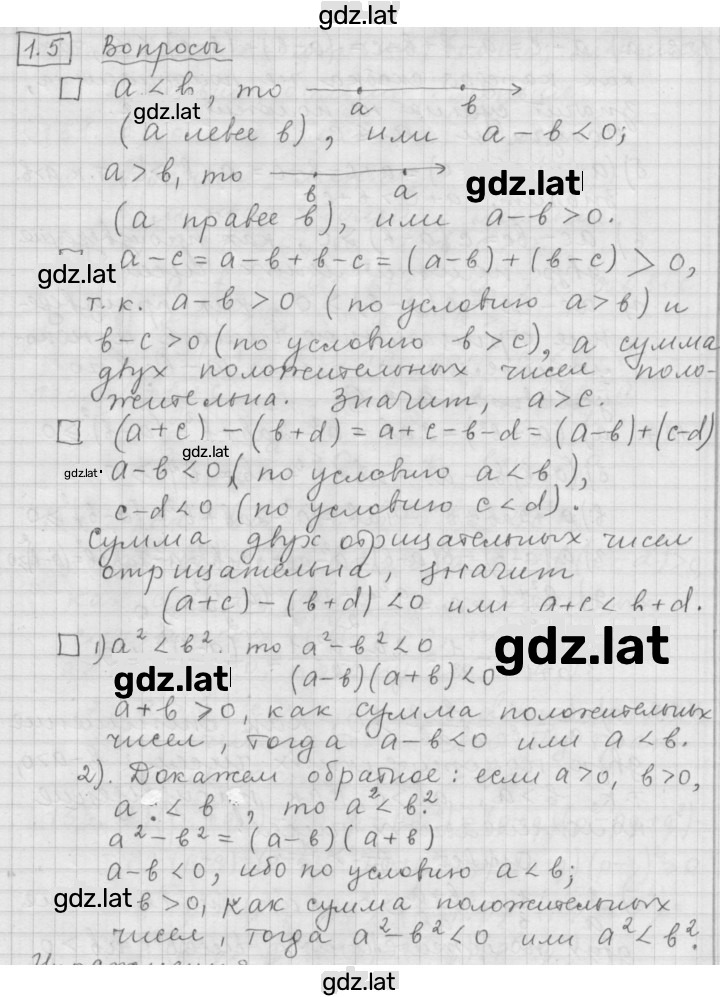 gdz.lat
1.5 Вопросы
□ a < b, то a b
gdz.lat
(a левее b), или a - b < 0;
a > b, то b a
gdz.lat
(a правее b), или a - b > 0.
a - c = a - b + b - c = (a - b) + (b - c) > 0,
gdz.lat
т. к. a - b > 0 (по условию a > b) и
b - c > 0 (по условию b > c), а сумма
двух положительных чисел поло-
жительна. Значит, a > c.
□ (a + c) - (b + d) = a + c - b - d = (a - b) + (c - d)
gdz.lat
gdz.lat
a - b < 0 (по условию a < b),
c - d < 0 (по условию c < d).
Сумма двух отрицательных чисел
отрицательна, значит
(a + c) - (b + d) < 0 или a + c < b + d.
□ 1) a² < b². то a² - b² < 0
gdz.lat
gdz.lat
(a - b)(a + b) < 0
a + b > 0, как сумма положительных
чисел, тогда a - b < 0 или a < b.
2). Докажем обратное: если a > 0, b > 0,
a < b, то a² < b².
a² - b² = (a - b)(a + b)
a - b < 0, ибо по условию a < b;
gdz.lat
b > 0, как сумма положительных
чисел, тогда a² - b² < 0 или a² < b².
gdz.lat